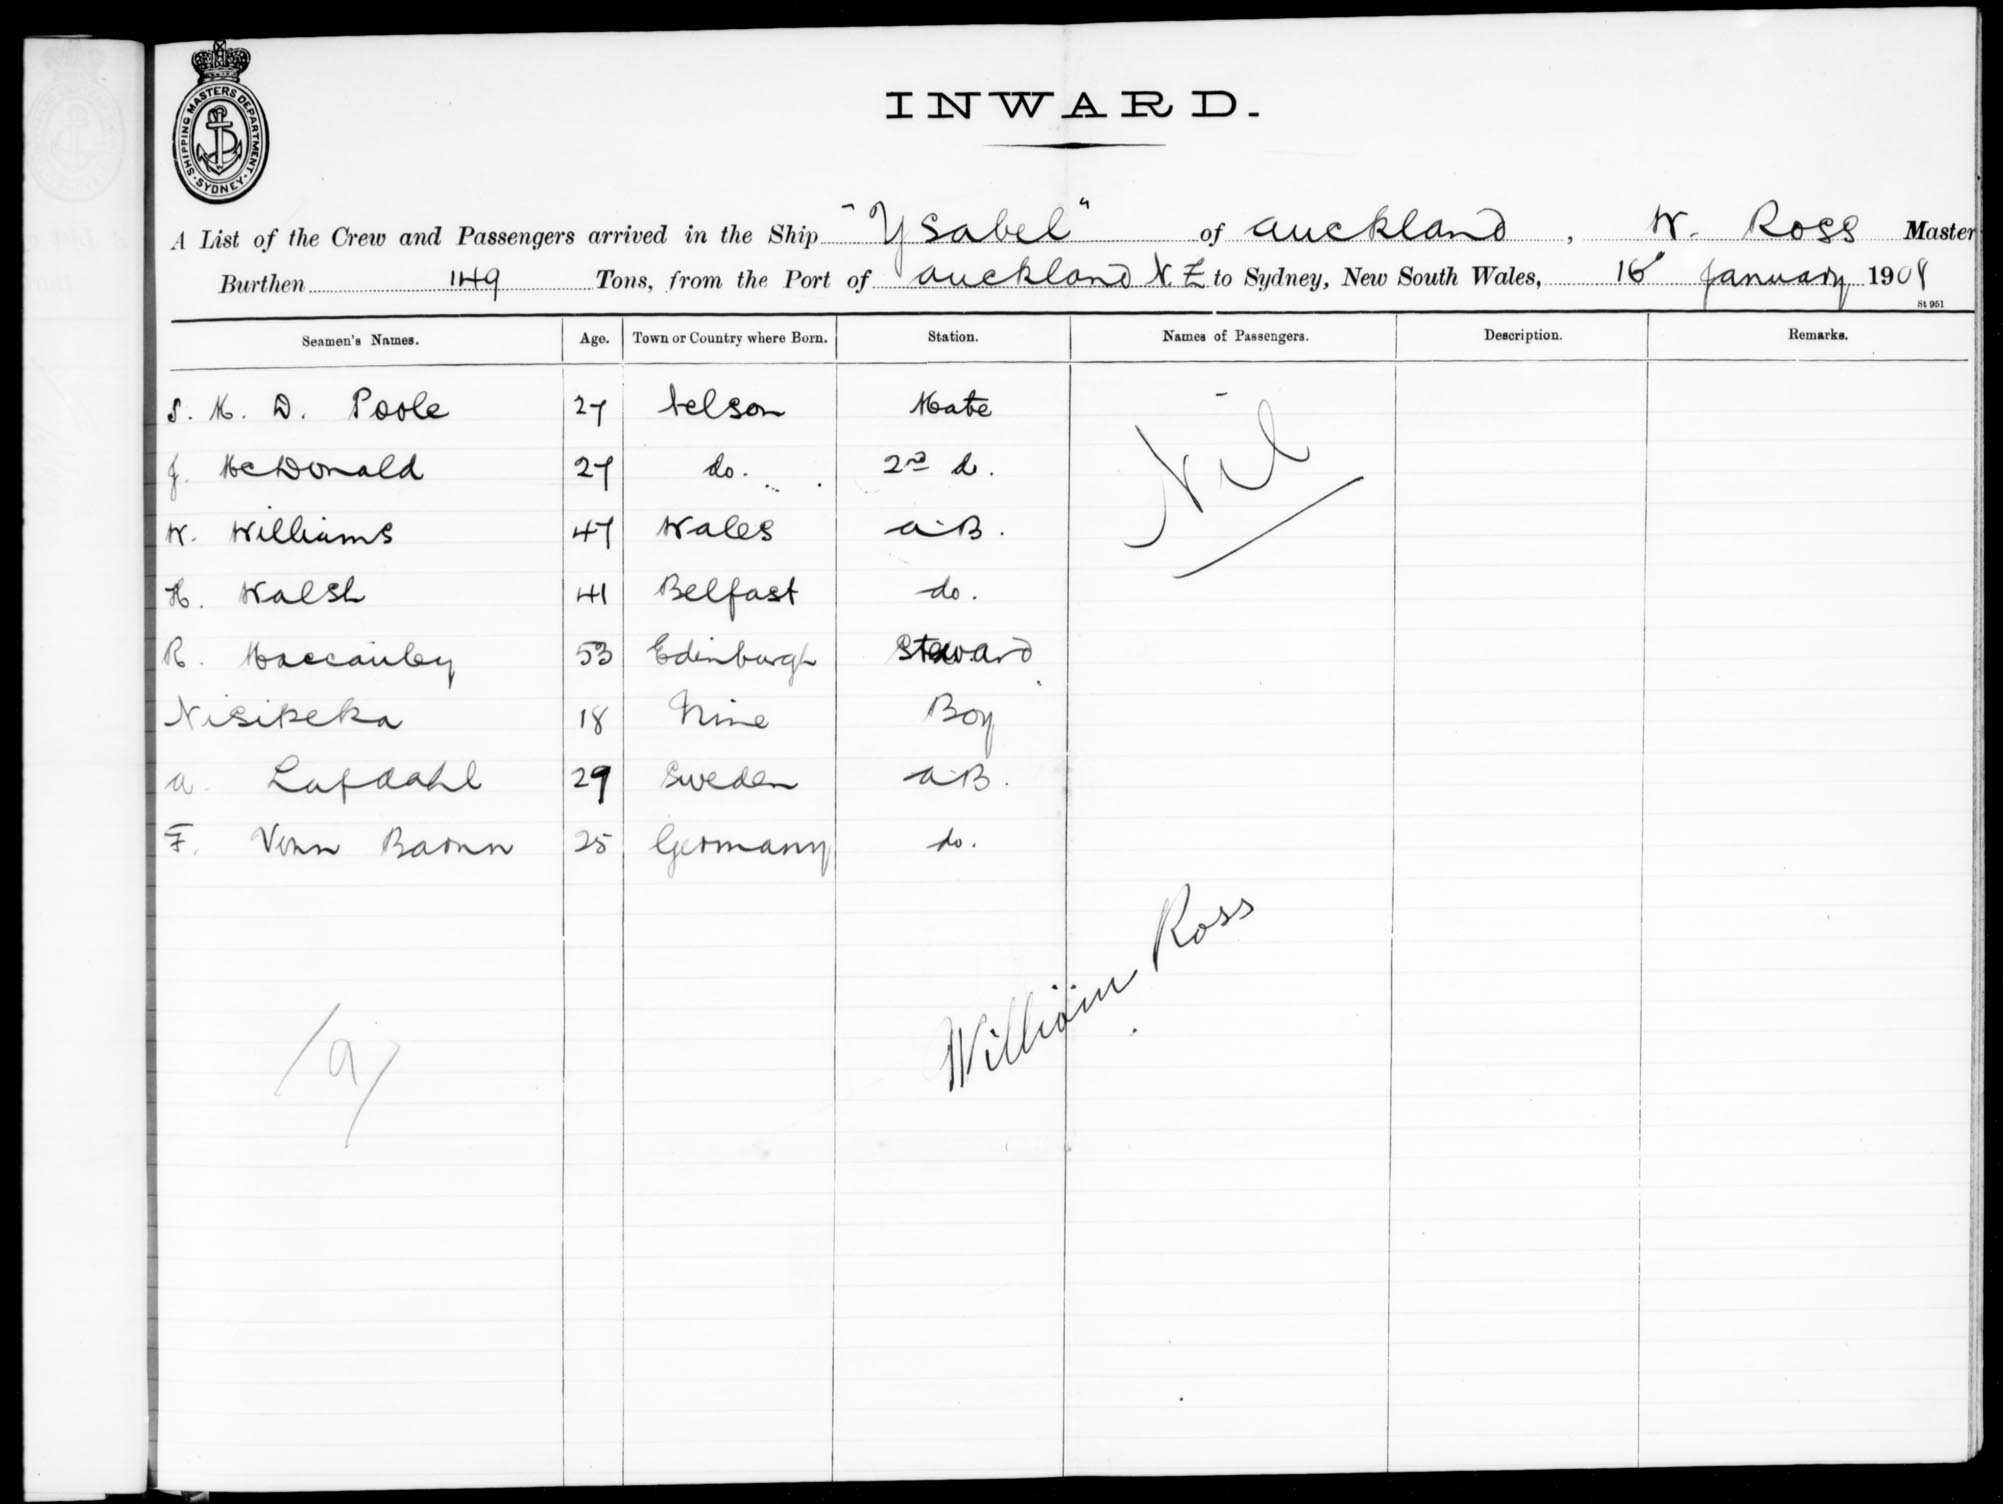 SHIPPING MASTERS DEPARTMENT. SYDNEY.
INWARD.
A List of the Crew and Passengers arrived in the Ship "Ysabel" of Auckland, W. Ross Master
Burthen 149 Tons, from the Port of Auckland N.Z to Sydney, New South Wales, 16 January 1908
St 951
Seamen's Names. Age. Town or Country where Born. Station. Names of Passengers. Description. Remarks.
S. M. D. Poole 27 Nelson Mate
Nil
J. McDonald 27 do. 2nd do.
W. Williams 47 Wales A.B.
H. Walsh 41 Belfast do.
R. Maccauley 53 Edinburgh Steward
Nisikeka 18 Niue Boy
A. Lafdahl 29 Sweden A.B.
F. Venn Baronn 25 Germany do.
William Ross
/9/